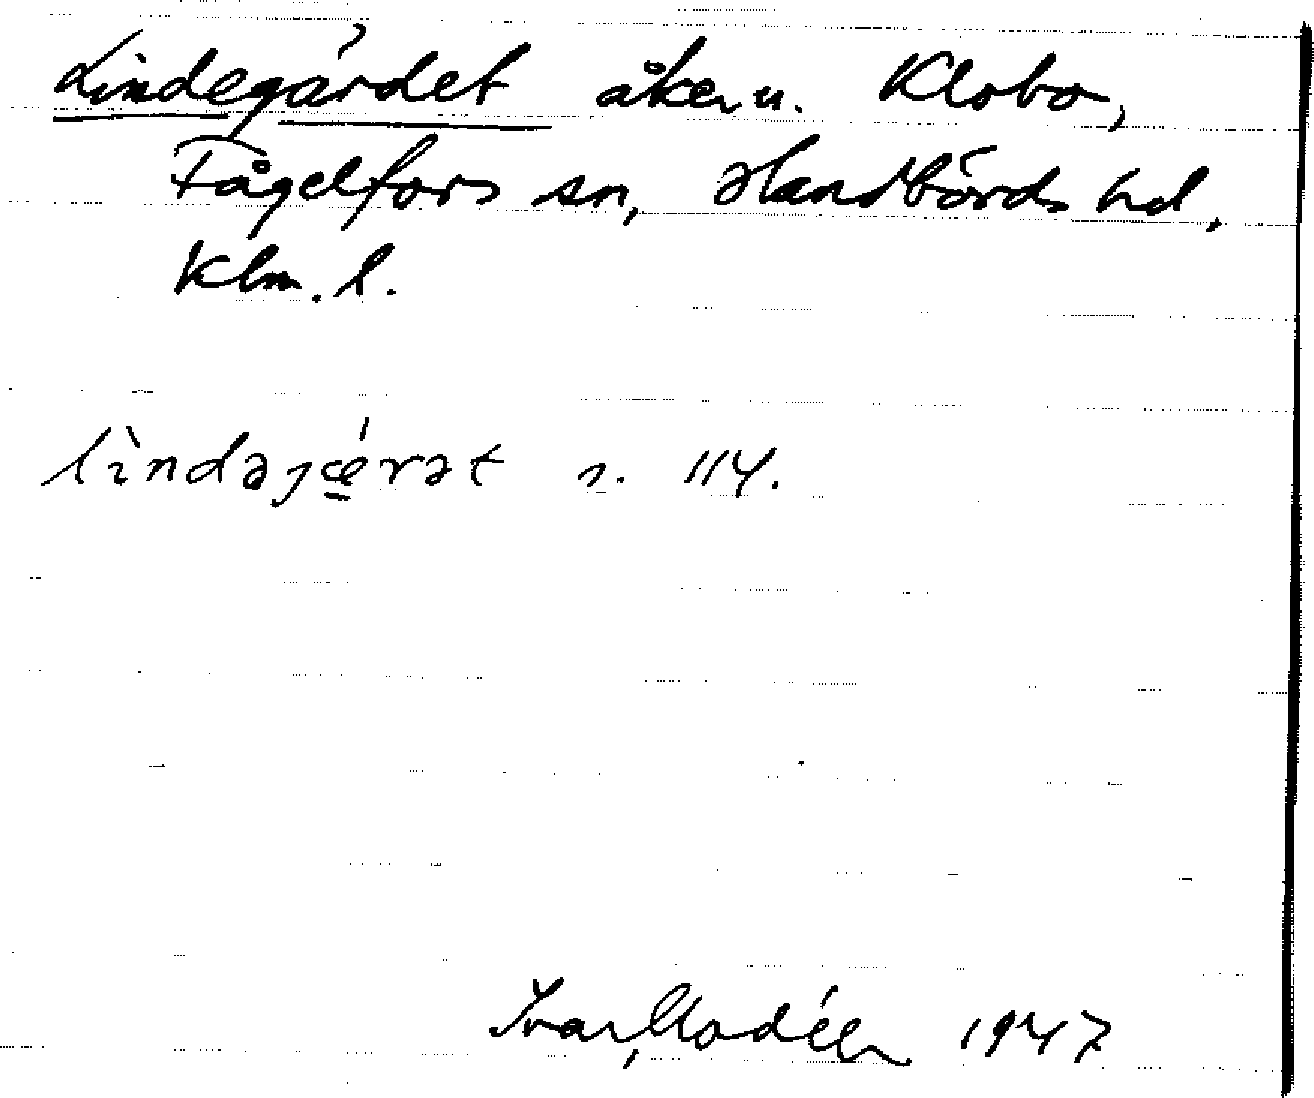 Lindegärdet åkern. Klobo,
Fågelfors sn, Handbörds hd,
Klm. l.
lìndəjǽ̠rət n. 114.
Ivar Modéer 1947